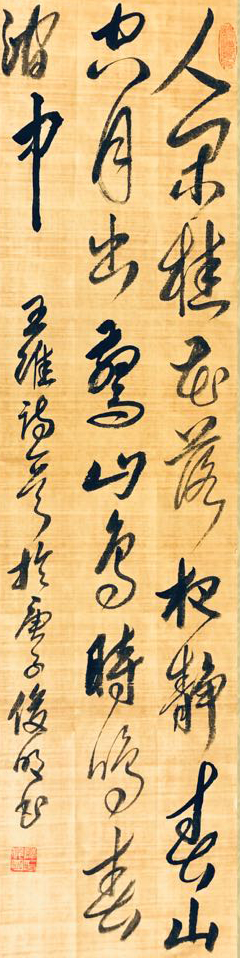 人閒桂花落夜靜春山
空月出驚山鳥時鳴春
澗中
王維詩於庚子俊明书